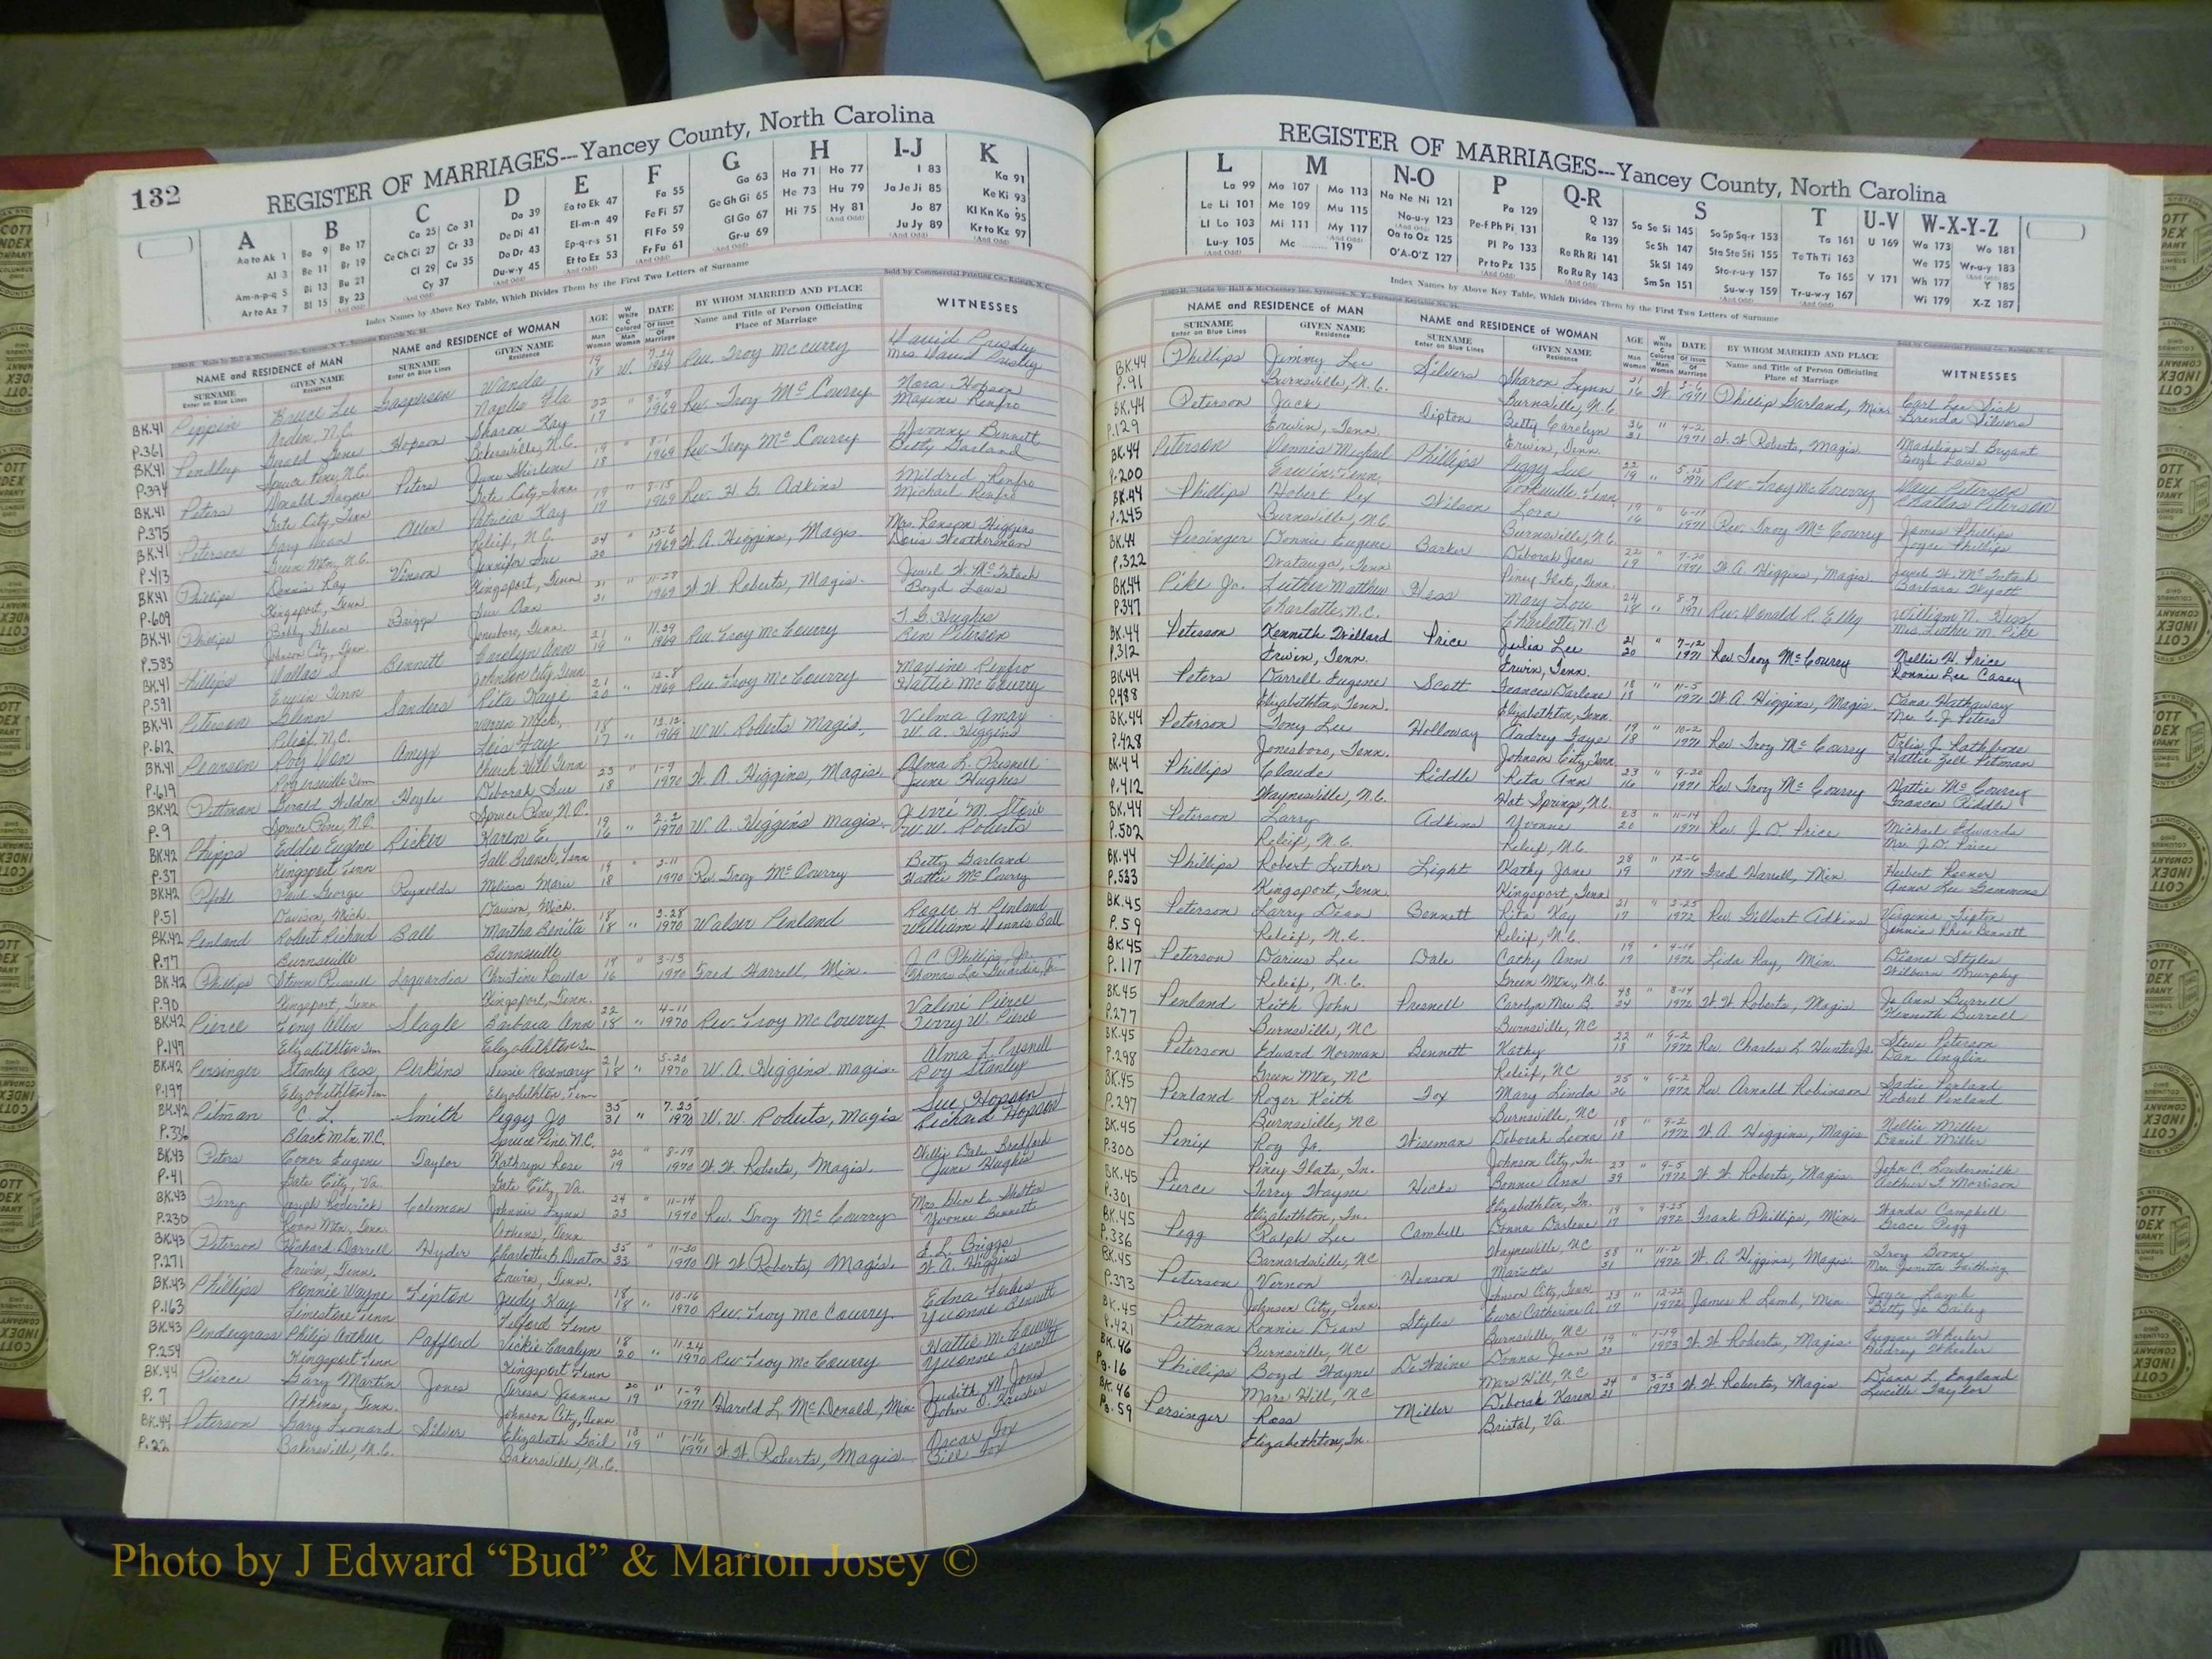 132
REGISTER OF MARRIAGES---Yancey County, North Carolina
A B C D E F G H I-J K
Aa to Ak 1 Ba 9 Bo 17 Ca 25 Co 31 Da 39 Ea to Ek 47 Fa 55 Ga 63 Ha 71 Ho 77 I 83 Ka 91
Al 3 Be 11 Br 19 Ce Ch Ci 27 Cr 33 De Di 41 El-m-n 49 Fe Fi 57 Ge Gh Gi 65 He 73 Hu 79 Ja Je Ji 85 Ke Ki 93
Am-n-p-q 5 Bi 13 Bu 21 Cl 29 Cu 35 Do Dr 43 Ep-q-r-s 51 Fl Fo 59 Gl Go 67 Hi 75 Hy 81 Jo 87 Kl Kn Ko 95
Ar to Az 7 Bl 15 By 23 Cy 37 Du-w-y 45 Et to Ez 53 Fr Fu 61 Gr-u 69 Ju Jy 89 Kr to Kz 97
Index Names by Above Key Table, Which Divides Them by the First Two Letters of Surname
Sold by Commercial Printing Co., Raleigh, N. C.
NAME and RESIDENCE OF MAN NAME and RESIDENCE OF WOMAN AGE DATE BY WHOM MARRIED AND PLACE WITNESSES
SURNAME GIVEN NAME SURNAME GIVEN NAME Name and Title of Person Officiating
Enter on Blue Lines Residence Enter on Blue Lines Residence Place of Marriage
BK.41 Bruce Lee Gasperson Wanda 19 18 W. 7-24 1969 Rev. Troy McCurry
P.361 Arden, N.C. Naples Fla
BK.41 Pendley Gerald Gene Hopson Sharon Kay 22 17 " 1969 Rev. Troy McCourry Nora Hopson Maxine Renfro
P.394 Spruce Pine, N.C. Bakersville, N.C.
BK.41 Peters Donald Wayne Peters June Shirlene 19 18 " 1969 Rev. Troy McCourry Yvonne Bennett Betty Garland
P.375 Gate City, Tenn Gate City, Tenn.
BK.41 Peterson Gary Dean Allen Patricia Kay 19 17 " 8-15 1969 Rev. H. G. Adkins Mildred Renfro Michael Renfro
P.413 Green Mtn, N.C. Relief, N.C.
BK.41 Phillips Dennis Ray Vinson Jennifer Sue 24 20 " 12-6 1969 W. A. Higgins, Magis Mrs. Ransom Higgins Doris Heatherman
P.609 Kingsport, Tenn Kingsport, Tenn
BK.41 Phillips Bobby Glenn Briggs Sue Ann 21 21 " 11-28 1969 W. W. Roberts, Magis. Jewel W. McIntosh Boyd Laws
P.583 Johnson City, Tenn. Jonesboro, Tenn.
BK.41 Phillips Dallas J Bennett Carolyn Ann 21 19 " 11-29 1969 Rev. Troy McCourry T. G. Hughes Ben Peterson
P.591 Erwin Tenn Johnson City, Tenn
BK.41 Peterson Glenn Sanders Rita Faye 21 20 " 12-8 1969 Rev. Troy McCourry Maxine Renfro Hattie McCourry
P.612 Relief, N.C. Warren Mich.
BK.41 Pearson Roy Von Amyx Lois Fay 18 17 " 12-12 1969 W.W. Roberts Magis, Vilma Amax W. A. Higgins
P.619 Rogersville Tenn Church Hill Tenn
BK.42 Pittman Gerald Hilden Hoyle Deborah Sue 23 18 " 1-9 1970 W. A. Higgins, Magis. Alma L. Presnell June Hughes
P.9 Spruce Pine, N.C. Spruce Pine, N.C.
BK.42 Phipps Eddie Eugene Ricker Karen E. 19 16 " 2-2 1970 W. A. Higgins magis. W. W. Roberts
P.37 Kingsport Tenn Fall Branch, Tenn
BK.42 Paul George Reynolds Melissa Marie 19 18 " 2-11 1970 Rev. Troy McCourry Betty Garland Hattie McCourry
P.51 Davison, Mich. Davison, Mich.
BK.42 Penland Robert Richard Ball Martha Benita 18 18 " 2-28 1970 Walser Penland Roger K Penland William Dennis Ball
P.77 Burnsville Burnsville
BK.42 Phillips Steven Russell Laguardia Christine Roxella 19 16 " 3-13 1970 Fred Harrell, Min. J. C. Phillips, Jr. Thomas La Guardia, Jr.
P.90 Kingsport, Tenn Kingsport, Tenn.
BK.42 Pierce Tony Allen Slagle Barbara Ann 22 18 " 4-11 1970 Rev. Troy McCourry Valeni Pierce Terry W. Pierce
P.147 Elizabethton Tenn Elizabethton Tenn
BK.42 Persinger Stanley Ross, Perkins Jessie Rosemary 21 18 " 5-20 1970 W. A. Higgins. magis. Alma L. Presnell Roy Stanley
P.197 Elizabethton Tenn Elizabethton, Tenn
BK.42 Pitman C. L. Smith Peggy Jo 35 31 " 7-25 1970 W. W. Roberts, Magis Sue Hopson Richard Hopson
P.336 Black Mtn. N.C. Spruce Pine N.C.
BK.43 Peters Conor Eugene Taylor Kathryn Rose 20 19 " 8-19 1970 W. W. Roberts, Magis. Willie Dale Bradford June Hughes
P.41 Gate City, Va. Gate City, Va.
BK.43 Perry Joseph Roderick Coleman Johnnie Lynn 24 23 " 11-14 1970 Rev. Troy McCourry Yvonne Bennett
P.230 Roan Mtn, Tenn. Athens, Tenn
BK.43 Peterson Richard Darrell Hyder Charlotte A. Deaton 35 33 " 11-30 1970 W. W. Roberts, Magis. E. L. Briggs W. A. Higgins
P.271 Erwin, Tenn. Erwin, Tenn.
BK.43 Phillips Ronnie Wayne Tipton Judy Kay 18 18 " 10-16 1970 Rev. Troy McCourry. Edna Forbes Yvonne Bennett
P.163 Limestone Tenn Telford Tenn
BK.43 Pendergrass Philip Arthur Pafford Vickie Caralyn 18 20 " 11-24 1970 Rev Troy McCourry Hattie McCourry Yvonne Bennett
P.254 Kingsport Tenn Kingsport Tenn
BK.44 Pierce Gary Martin Jones Teresa Jeanne 20 19 " 1-9 1971 Harold L. McDonald, Min. Judith M. Jones
P.7 Athens, Tenn. Johnson City, Tenn.
BK.44 Peterson Gary Leonard Silver Elizabeth Gail 18 19 " 1-16 1971 W. W. Roberts, Magis. Oscar Fox Bill Fox
P.22 Bakersville, N.C. Bakersville, N.C.
REGISTER OF MARRIAGES---Yancey County, North Carolina
L M N-O P Q-R S T U-V W-X-Y-Z
La 99 Ma 107 Mo 113 Na Ne Ni 121 Pa 129 Q 137 Sa Se Si 145 So Sp Sq-r 153 Ta 161 U 169 Wa 173 Wo 181
Le Li 101 Me 109 Mu 115 No-u-y 123 Pe-f Ph Pi 131 Ra 139 Sc Sh 147 Sta Ste Sti 155 Te Th Ti 163 We 175 Wr-u-y 183
Ll Lo 103 Mi 111 My 117 Oa to Oz 125 Pl Po 133 Re Rh Ri 141 Sk Sl 149 Sto-r-u-y 157 To 165 V 171 Wh 177 Y 185
Lu-y 105 Mc 119 O'A-O'Z 127 Pr to Pz 135 Ro Ru Ry 143 Sm Sn 151 Su-w-y 159 Tr-u-w-y 167 Wi 179 X-Z 187
Index Names by Above Key Table, Which Divides Them by the First Two Letters of Surname
NAME and RESIDENCE OF MAN NAME and RESIDENCE OF WOMAN AGE DATE BY WHOM MARRIED AND PLACE WITNESSES
SURNAME GIVEN NAME SURNAME GIVEN NAME Name and Title of Person Officiating
Enter on Blue Lines Residence Enter on Blue Lines Residence Place of Marriage
BK.44 Phillips Jimmy Lee Silvers Sharon Lynn 21 16 W. 3-6 1971 Phillip Garland, Min. Carl Lee Sisk Brenda Silvers
P.91 Burnsville, N.C. Burnsville, N.C.
BK.44 Peterson Jack Tipton Betty Carolyn 36 31 " 4-2 1971 W. W. Roberts, Magis. Madeline S. Bryant Boyd Laws
P.129 Erwin, Tenn. Erwin, Tenn.
BK.44 Peterson Dennis Michael Phillips Peggy Sue 22 19 " 5-15 1971 Rev Troy McCourry Dallas Peterson
P.200 Erwin, Tenn.
BK.44 Phillips Hobert Rex Wilson Lora 19 16 " 6-11 1971 Rev. Troy McCourry James Phillips Joyce Phillips
P.245 Burnsville, N.C. Burnsville, N.C.
BK.44 Persinger Donnie Eugene Barker Deborah Jean 22 19 " 7-20 1971 W. A. Higgins, Magis. Jewel W. McIntosh Barbara Wyatt
P.322 Watauga, Tenn Piney Flats, Tenn.
BK.44 Pike Jr. Luther Matthew Hess Mary Lou 24 18 " 8-7 1971 Rev. Donald R. Elley William N. Hess Mrs. Luther M. Pike
P.347 Charlotte, N.C. Charlotte, N.C
BK.44 Peterson Kenneth Willard Price Julia Lee 21 20 " 7-12 1971 Rev Troy McCourry Nellie H. Price Ronnie Lee Casey
P.312 Erwin, Tenn. Erwin, Tenn.
BK.44 Peters Darrell Eugene Scott Frances Darlene 18 18 " 11-5 1971 W. A. Higgins, Magis. Dana Hathaway Mrs. C. J. Peters
P.488 Elizabethton, Tenn. Elizabethton, Tenn.
BK.44 Peterson Tony Lee Holloway Audrey Faye 19 18 " 10-2 1971 Rev Troy McCourry Orbie J. Rathbone Hattie Zell Pitman
P.428 Jonesboro, Tenn. Johnson City, Tenn.
BK.44 Phillips Claude Riddle Rita Ann 23 16 " 9-20 1971 Rev. Troy McCourry Hattie McCourry Frances Riddle
P.412 Waynesville, N.C. Hot Springs, N.C.
BK.44 Peterson Larry Adkins Yvonne 23 20 " 11-14 1971 Rev. J. D. Price Michael Edwards Mrs. J. D. Price
P.502 Relief, N.C. Relief, N.C.
BK.44 Phillips Robert Luther Light Kathy Jane 28 19 " 12-6 1971 Fred Harrell, Min Herbert Keener Anna Lee Gemmons
P.533 Kingsport, Tenn. Kingsport, Tenn
BK.45 Peterson Larry Dean Bennett Rita Kay 21 17 " 2-25 1972 Rev. Gilbert Adkins Virginia Tipton Jennie Rhea Bennett
P.59 Relief, N.C. Relief, N.C.
BK.45 Peterson Darius Lee Dale Cathy Ann 19 19 " 4-14 1972 Lida Ray, Min. Diana Styles Wilburn Murphy
P.117 Relief, N.C. Green Mtn, N.C.
BK.45 Penland Keith John Presnell Carolyn Mae B. 43 24 " 8-14 1972 W. W. Roberts, Magis Jo Ann Burrell Kenneth Burrell
P.277 Burnsville, NC Burnsville, NC
BK.45 Peterson Edward Norman Bennett Kathy 22 18 " 9-2 1972 Rev. Charles L Hunter Jr. Steve Peterson Dan Anglin
P.298 Green Mtn, NC Relief, NC
BK.45 Penland Roger Keith Fox Mary Linda 25 26 " 9-2 1972 Rev Arnold Robinson Sadie Penland Robert Penland
P.297 Burnsville, NC Burnsville, NC
BK.45 Penix Roy Jr. Wiseman Deborah Leona 18 18 " 9-2 1972 W. A. Higgins, Magis Nellie Miller Daniel Miller
P.300 Piney Flats, Tn. Johnson City, Tn
BK.45 Pierce Terry Wayne Hicks Bonnie Ann 23 39 " 9-5 1972 W. W. Roberts, Magis. John C. Loudermilk Arthur T. Morrison
P.301 Elizabethton, Tn. Elizabethton, Tn.
BK.45 Pegg Ralph Lee Cambell Donna Darlene 19 17 " 9-25 1972 Frank Phillips, Min. Wanda Campbell Grace Pegg
P.336 Barnardsville, NC Waynesville, NC
BK.45 Peterson Vernon Henson Marietta 58 51 " 11-2 1972 W. A. Higgins, Magis. Troy Boone Mrs. Juanita Farthing
P.373 Johnson City, Tenn. Johnson City, Tenn
BK.45 Pittman Ronnie Dean Styles Eura Catherine A. 23 17 " 12-22 1972 James R. Lamb, Min Joyce Lamb Betty Jo Bailey
P.421 Burnsville, NC Burnsville, NC
BK.46 Phillips Boyd Wayne DeHaine Donna Jean 19 22 " 1-19 1973 W. W. Roberts, Magis Eugene Wheeler Audrey Wheeler
Pg.16 Mars Hill, NC Mars Hill, NC
BK.46 Persinger Ross Miller Deborah Karen 24 21 " 3-5 1973 W. W. Roberts, Magis Diana L. England Lucille Taylor
Pg.59 Elizabethton, Tn. Bristol, Va.
Photo by J Edward “Bud” & Marion Josey ©